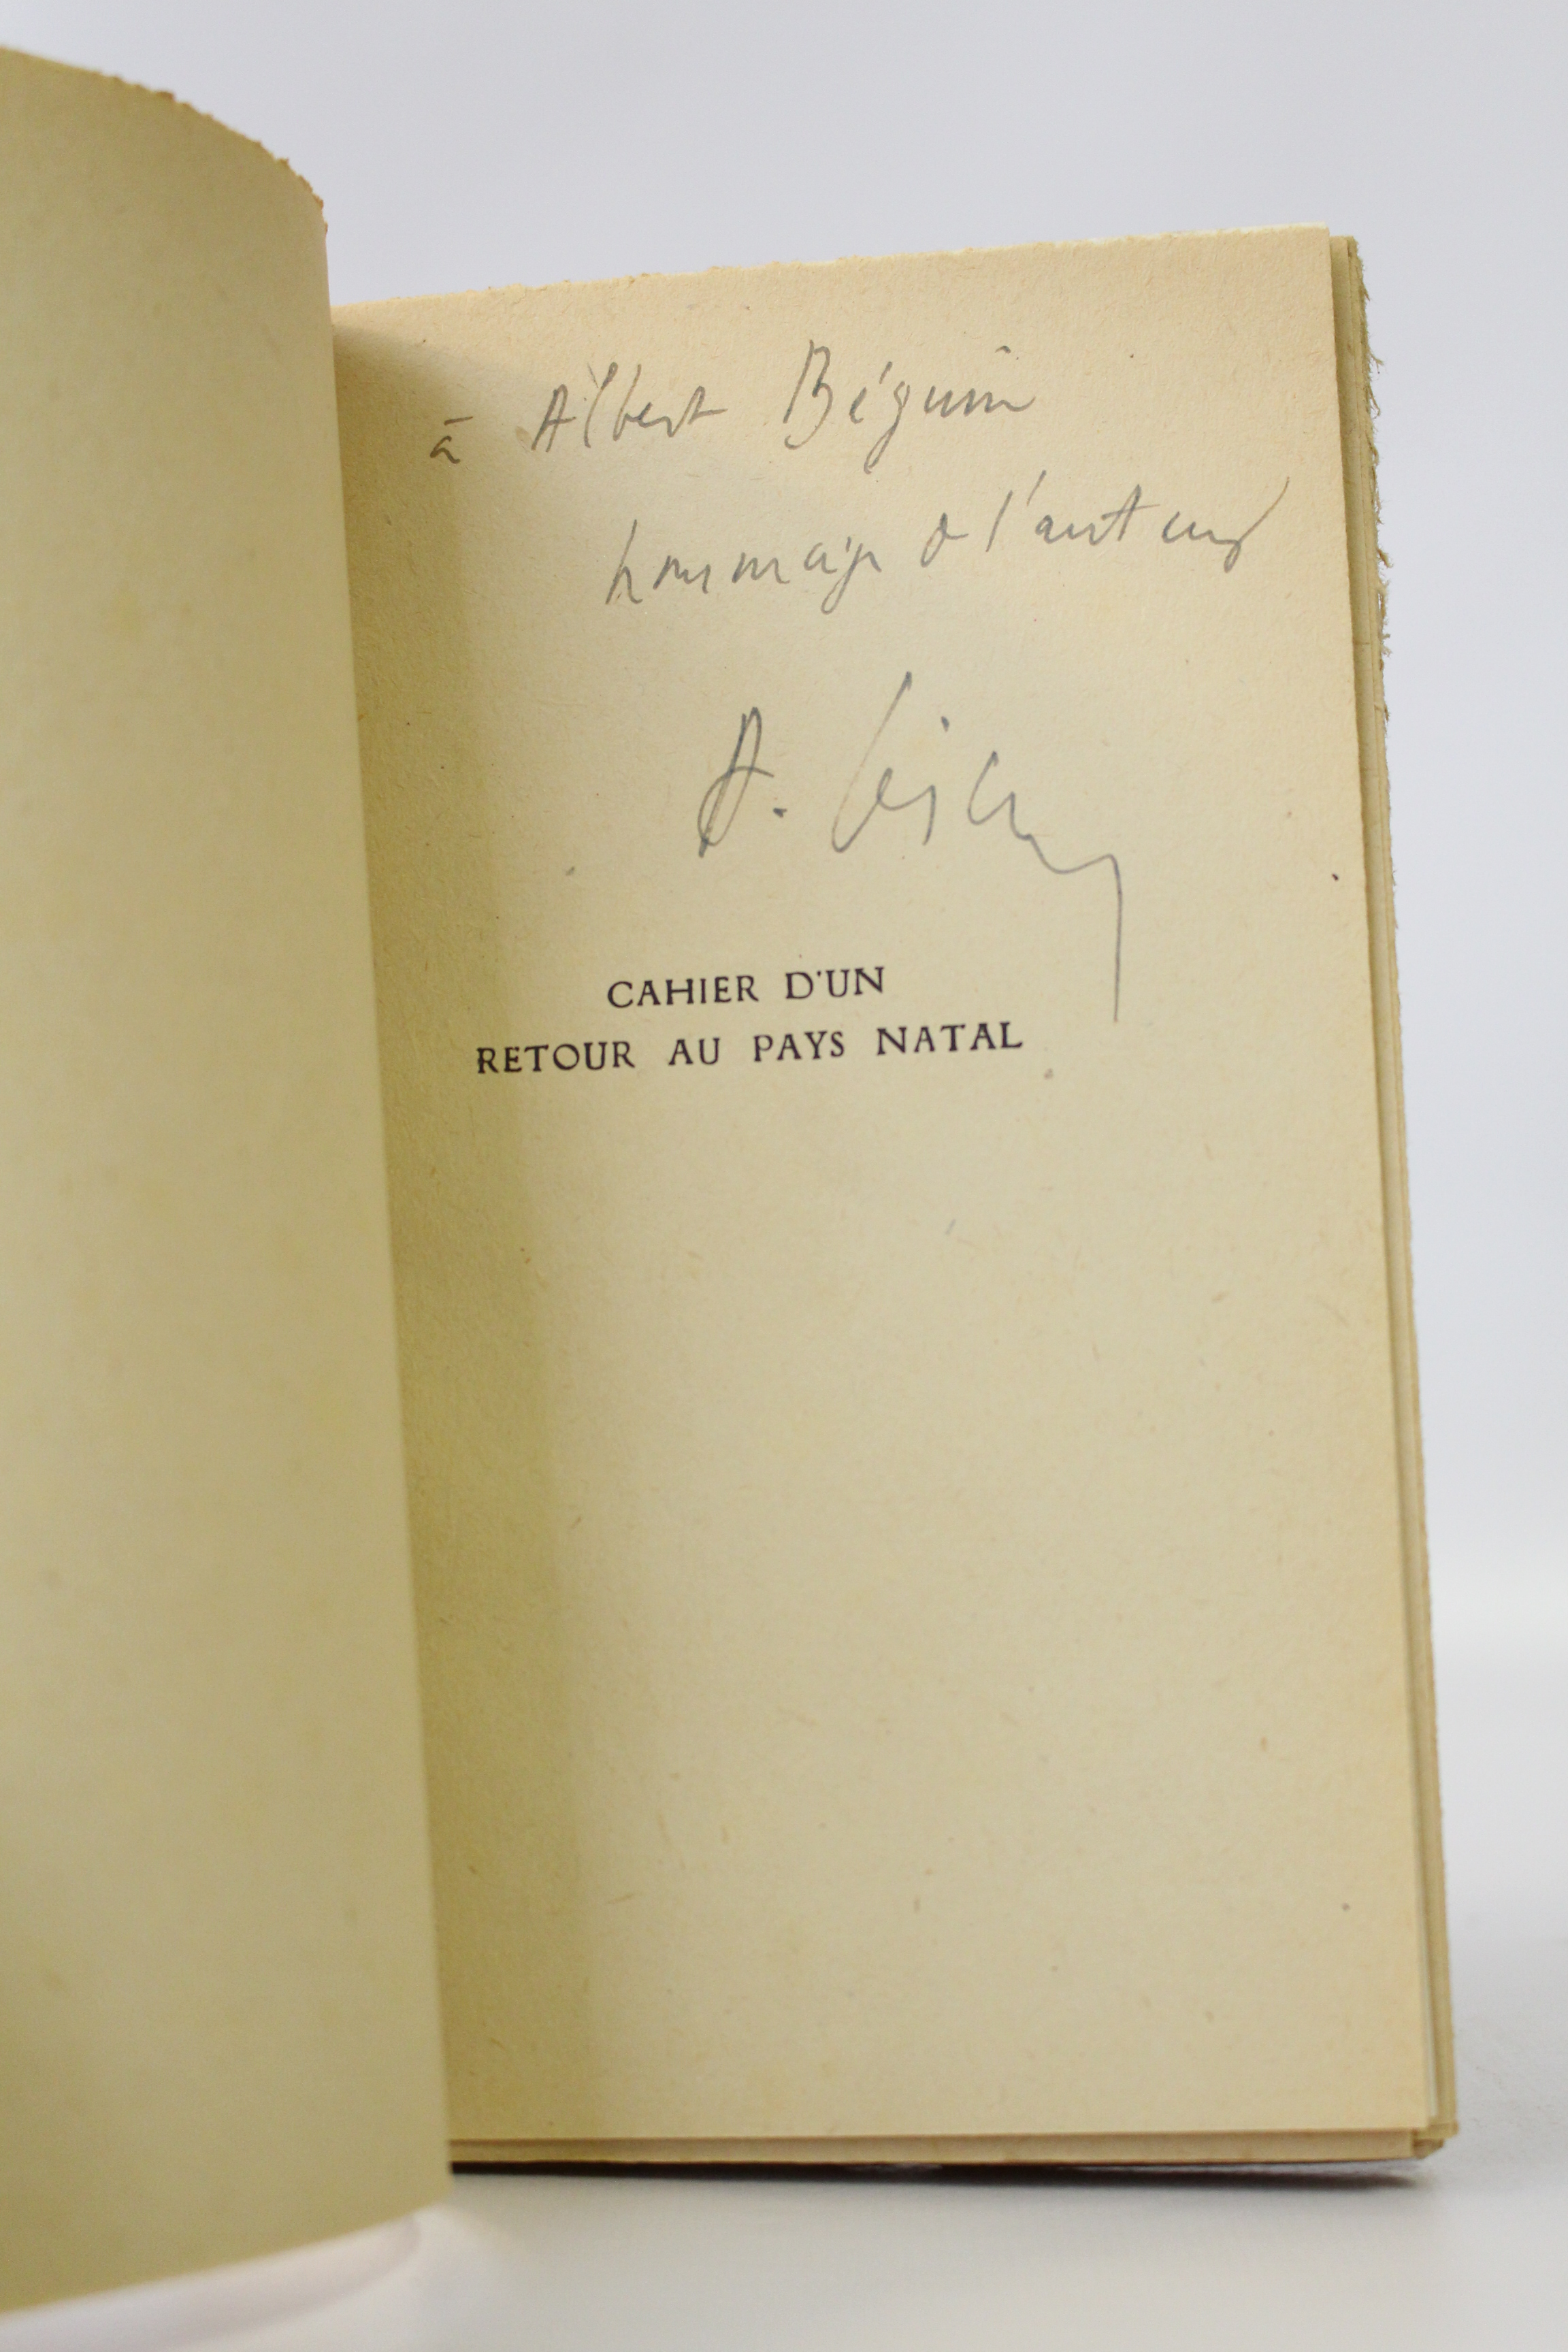 à Albert Béguin
hommage de l'auteur
A. Césaire
CAHIER D'UN
RETOUR AU PAYS NATAL